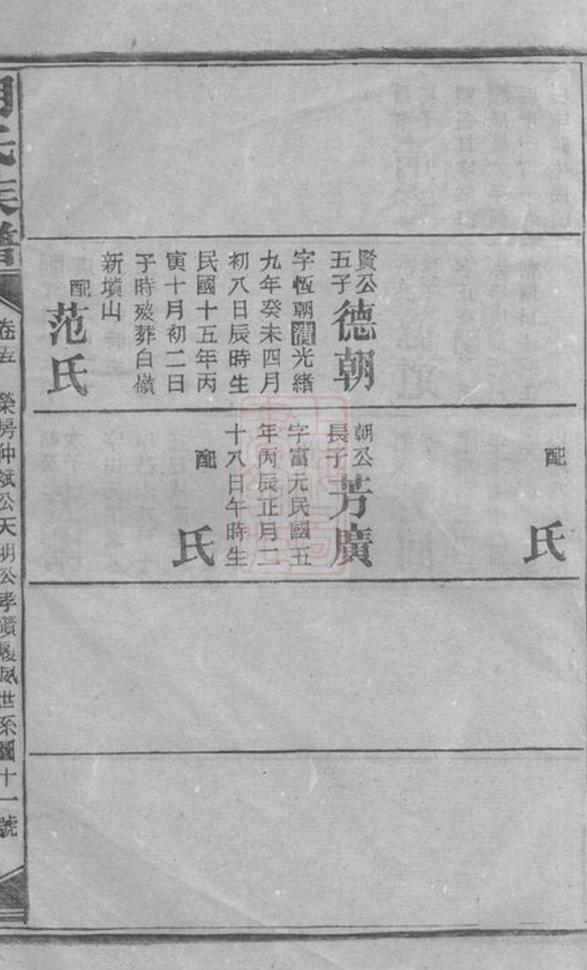 賢公五子德朝
字恆朝清光緒
九年癸未四月
初八日辰時生
民國十五年丙
寅十月初二日
子時歿葬白嶺
新墳山
配范氏
配 氏
朝公長子芳廣
字富元民國五
年丙辰正月二
十八日午時生
配 氏
氏族譜
卷五 榮房仲斌公天明公孝 履鳳世系圖十一號